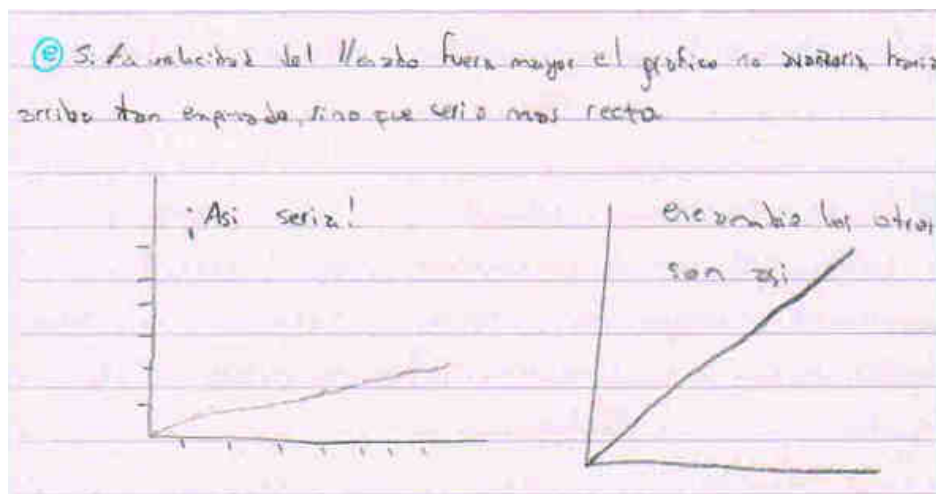 e Si la velocidad del llenado fuera mayor el grafico no avanzaria hacia
arriba tan empinado, sino que seria mas recto
¡Asi seria!
en cambio los otros
son asi